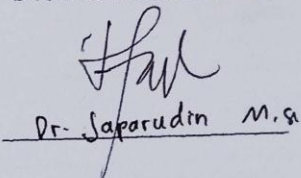 Dr. Saparudin M.Si